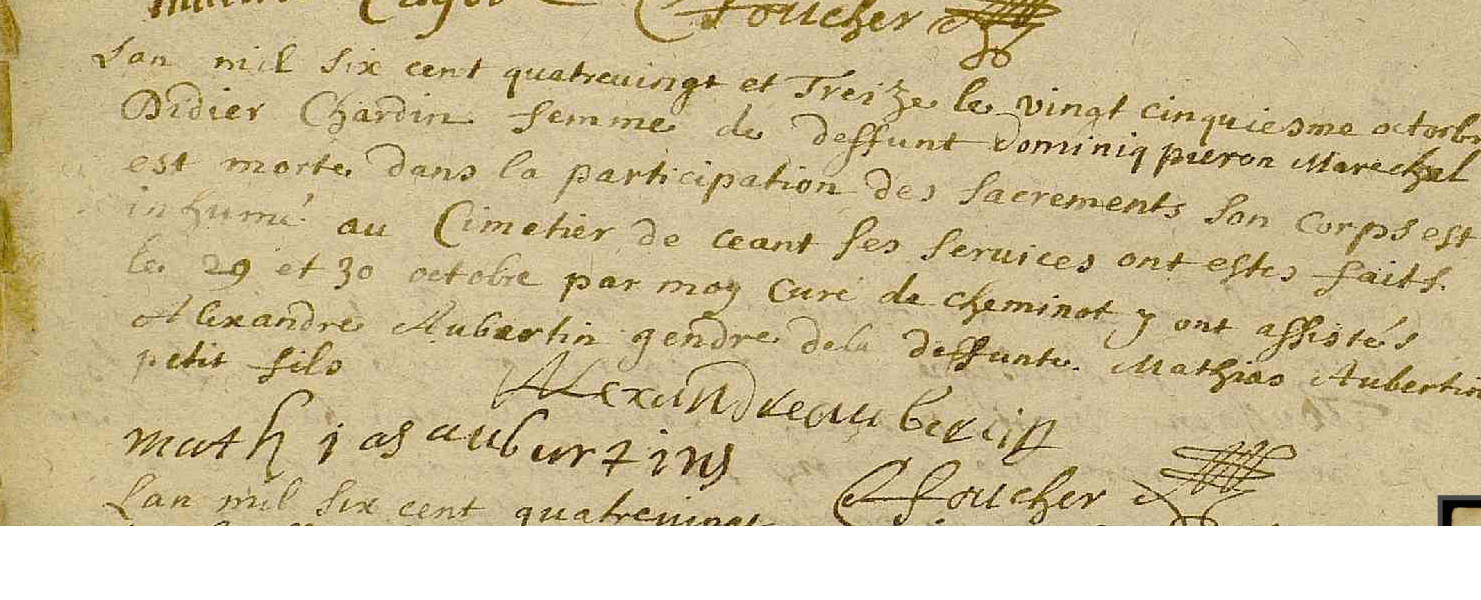 Foucher
Lan mil six cent quatreuingt et Treize le vingt cinquiesme octorb
Didier Chardin femme de deffunt Dominiq pieron Marechal
est morte dans la participation des sacrements son corps est
inhumé au Cimetier de ceant ses seruices ont estes faits
le 29 et 30 octobre par moy Curé de cheminot y ont assistés
Alexandre Aubertin gendre de la deffunte. Mathias Aubertin
petit fils
Alexandre aubertin
mathias auburtins
Foucher
Lan mil six cent quatreuingt